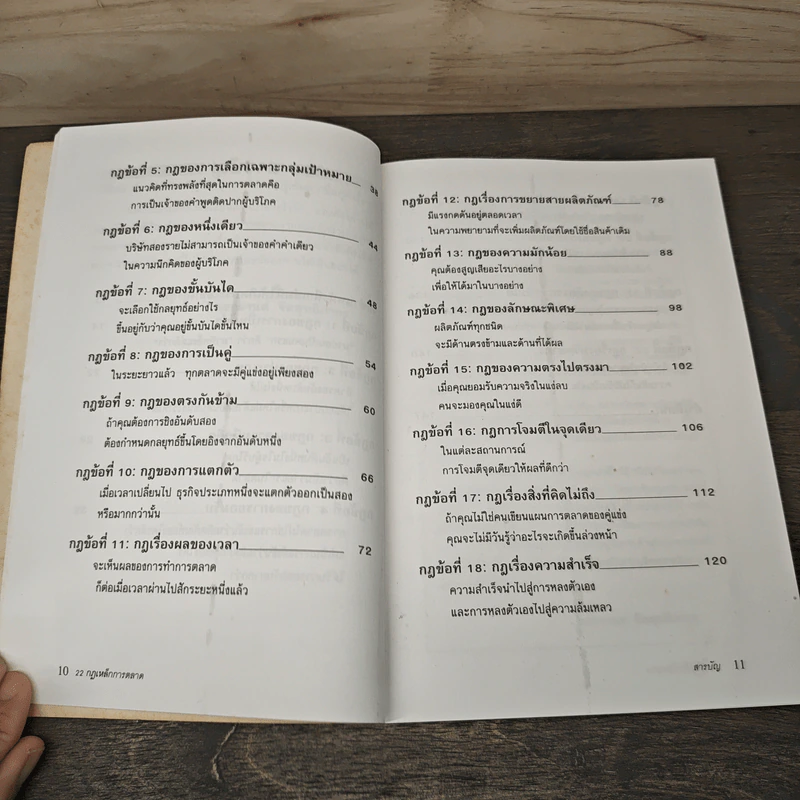 กฎข้อที่ 5: กฎของการเลือกเฉพาะกลุ่มเป้าหมาย 38
แนวคิดที่ทรงพลังที่สุดในการตลาดคือ
การเป็นเจ้าของคำพูดติดปากผู้บริโภค
กฎข้อที่ 6: กฎของหนึ่งเดียว 44
บริษัทสองรายไม่สามารถเป็นเจ้าของคำคำเดียว
ในความนึกคิดของผู้บริโภค
กฎข้อที่ 7: กฎของขั้นบันได 48
จะเลือกใช้กลยุทธ์อย่างไร
ขึ้นอยู่กับว่าคุณอยู่ขั้นบันไดขั้นไหน
กฎข้อที่ 8: กฎของการเป็นคู่ 54
ในระยะยาวแล้ว ทุกตลาดจะมีคู่แข่งอยู่เพียงสอง
กฎข้อที่ 9: กฎของตรงกันข้าม 60
ถ้าคุณต้องการชิงอันดับสอง
ต้องกำหนดกลยุทธ์ขึ้นโดยอิงจากอันดับหนึ่ง
กฎข้อที่ 10: กฎของการแตกตัว 66
เมื่อเวลาเปลี่ยนไป ธุรกิจประเภทหนึ่งจะแตกตัวออกเป็นสอง
หรือมากกว่านั้น
กฎข้อที่ 11: กฎเรื่องผลของเวลา 72
จะเห็นผลของการทำการตลาด
ก็ต่อเมื่อเวลาผ่านไปสักระยะหนึ่งแล้ว
10 22 กฎเหล็กการตลาด
กฎข้อที่ 12: กฎเรื่องการขยายสายผลิตภัณฑ์ 78
มีแรงกดดันอยู่ตลอดเวลา
ในความพยายามที่จะเพิ่มผลิตภัณฑ์โดยใช้ชื่อสินค้าเดิม
กฎข้อที่ 13: กฎของความมักน้อย 88
คุณต้องสูญเสียอะไรบางอย่าง
เพื่อให้ได้มาในบางอย่าง
กฎข้อที่ 14: กฎของลักษณะพิเศษ 98
ผลิตภัณฑ์ทุกชนิด
จะมีด้านตรงข้ามและด้านที่ได้ผล
กฎข้อที่ 15: กฎของความตรงไปตรงมา 102
เมื่อคุณยอมรับความจริงในแง่ลบ
คนจะมองคุณในแง่ดี
กฎข้อที่ 16: กฎการโจมตีในจุดเดียว 106
ในแต่ละสถานการณ์
การโจมตีจุดเดียวให้ผลที่ดีกว่า
กฎข้อที่ 17: กฎเรื่องสิ่งที่คิดไม่ถึง 112
ถ้าคุณไม่ใช่คนเขียนแผนการตลาดของคู่แข่ง
คุณจะไม่มีวันรู้ว่าอะไรจะเกิดขึ้นล่วงหน้า
กฎข้อที่ 18: กฎเรื่องความสำเร็จ 120
ความสำเร็จนำไปสู่การหลงตัวเอง
และการหลงตัวเองไปสู่ความล้มเหลว
สารบัญ 11